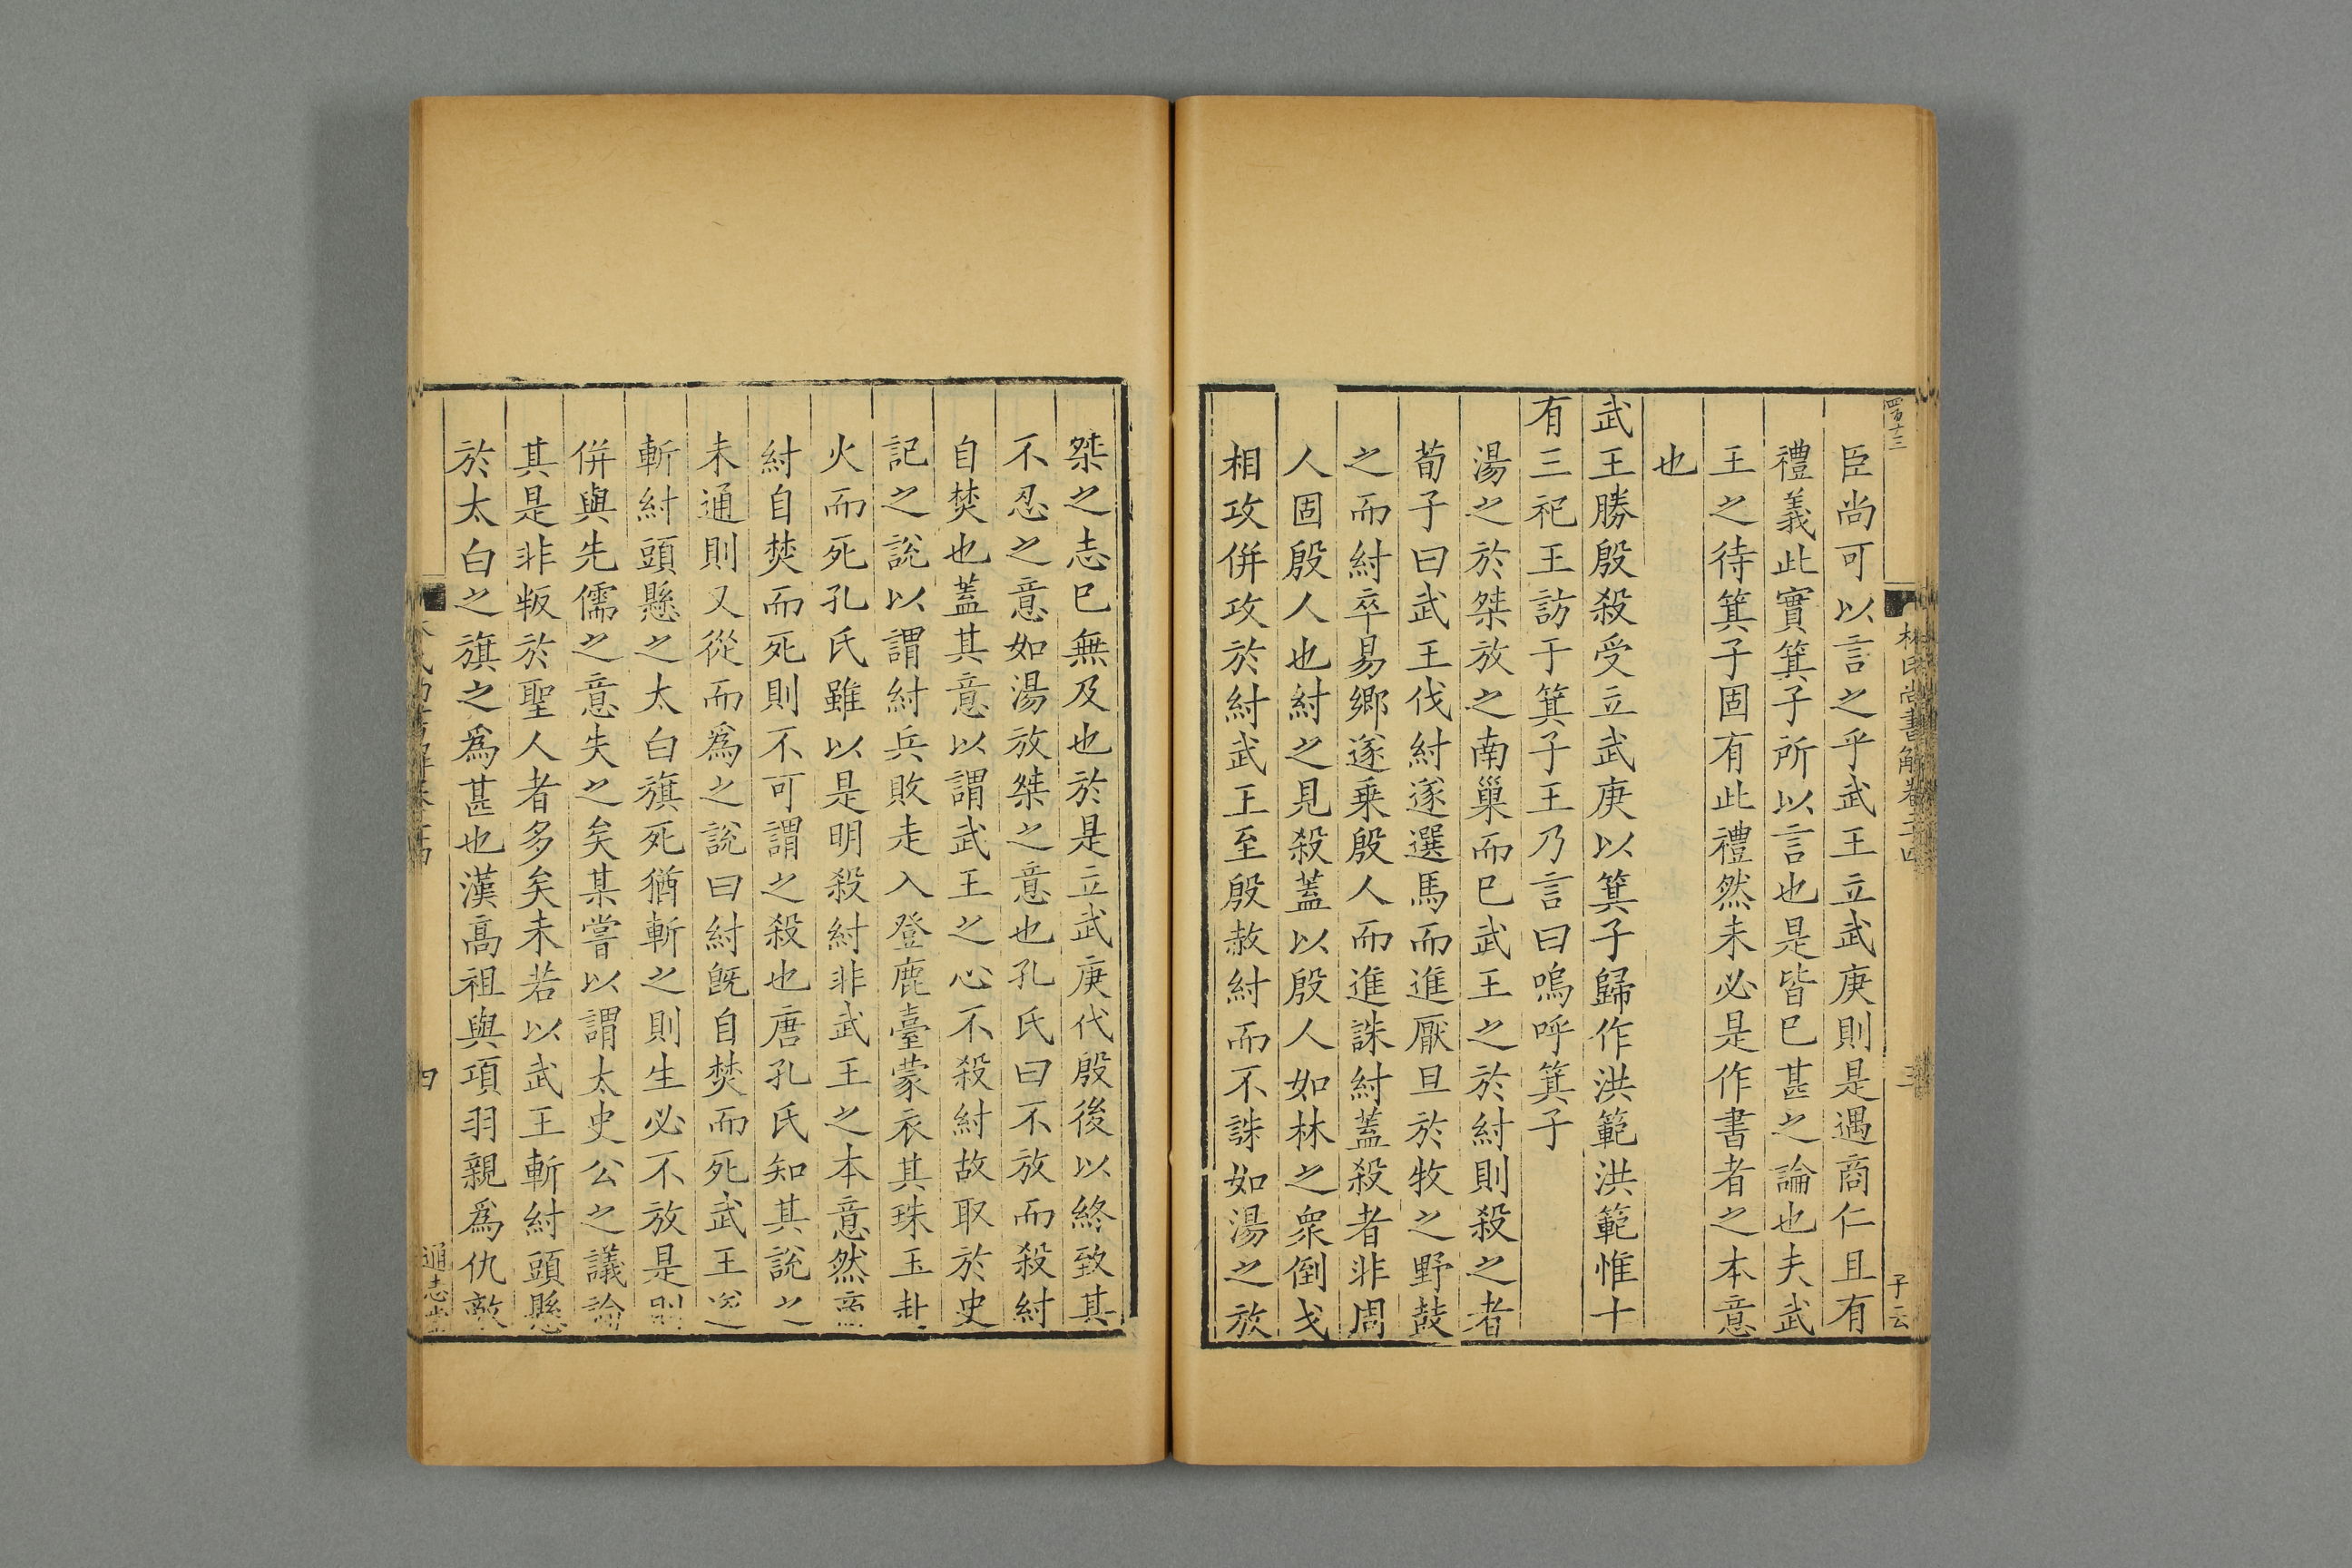 四百十三
林氏尚書解卷二十四
三
子云
臣尚可以言之乎武王立武庚則是遇商仁且有
禮義此實箕子所以言也是皆巳甚之論也夫武
王之待箕子固有此禮然未必是作書者之本意
也
武王勝殷殺受立武庚以箕子歸作洪範洪範惟十
有三祀王訪于箕子王乃言曰嗚呼箕子
湯之於桀放之南巢而巳武王之於紂則殺之者
荀子曰武王伐紂遂選馬而進厭旦於牧之野鼓
之而紂卒易鄉遂乗殷人而進誅紂蓋殺者非周
人固殷人也紂之見殺蓋以殷人如林之衆倒戈
相攻併攻於紂武王至殷赦紂而不誅如湯之放
桀之志巳無及也於是立武庚代殷後以終致其
不忍之意如湯放桀之意也孔氏曰不放而殺紂
自焚也蓋其意以謂武王之心不殺紂故取於史
記之說以謂紂兵敗走入登鹿臺蒙衣其珠玉赴
火而死孔氏雖以是明殺紂非武王之本意然商
紂自焚而死則不可謂之殺也唐孔氏知其說之
未通則又從而爲之說曰紂旣自焚而死武王遂
斬紂頭懸之太白旗死猶斬之則生必不放是則
併與先儒之意失之矣某嘗以謂太史公之議論
其是非叛於聖人者多矣未若以武王斬紂頭懸
於太白之旗之爲甚也漢高祖與項羽親爲仇敵
四
通志堂